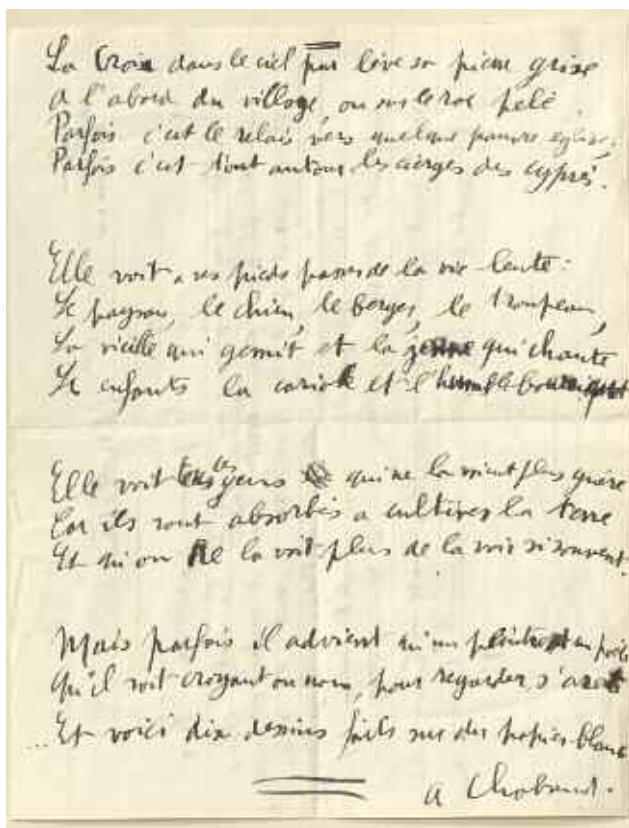 La Croix dans le ciel pur lève sa pierre grise
A l'abord du village, ou sur le roc pelé.
Parfois c'est le relais vers quelque pauvre eglise,
Parfois c'est tout autour les cierges des cyprés.
Elle voit a ses pieds passer de la vie lente:
Le paysan, le chien, le berger, le troupeau,
La vieille qui gemit et la jeune qui chante
Le enfants la cariole et l'humble
Elle voit tous les gens qui ne la voient plus guère
Car ils sont absorbés a cultiver la terre
Et qu'on ne la voit plus de la voir si souvent.
Mais parfois il advient qu'un peintre un poète
Qu'il soit croyant ou non, pour regarder s'arrete
...Et voici dix dessins faits sur du papier blanc
A Chabaud.